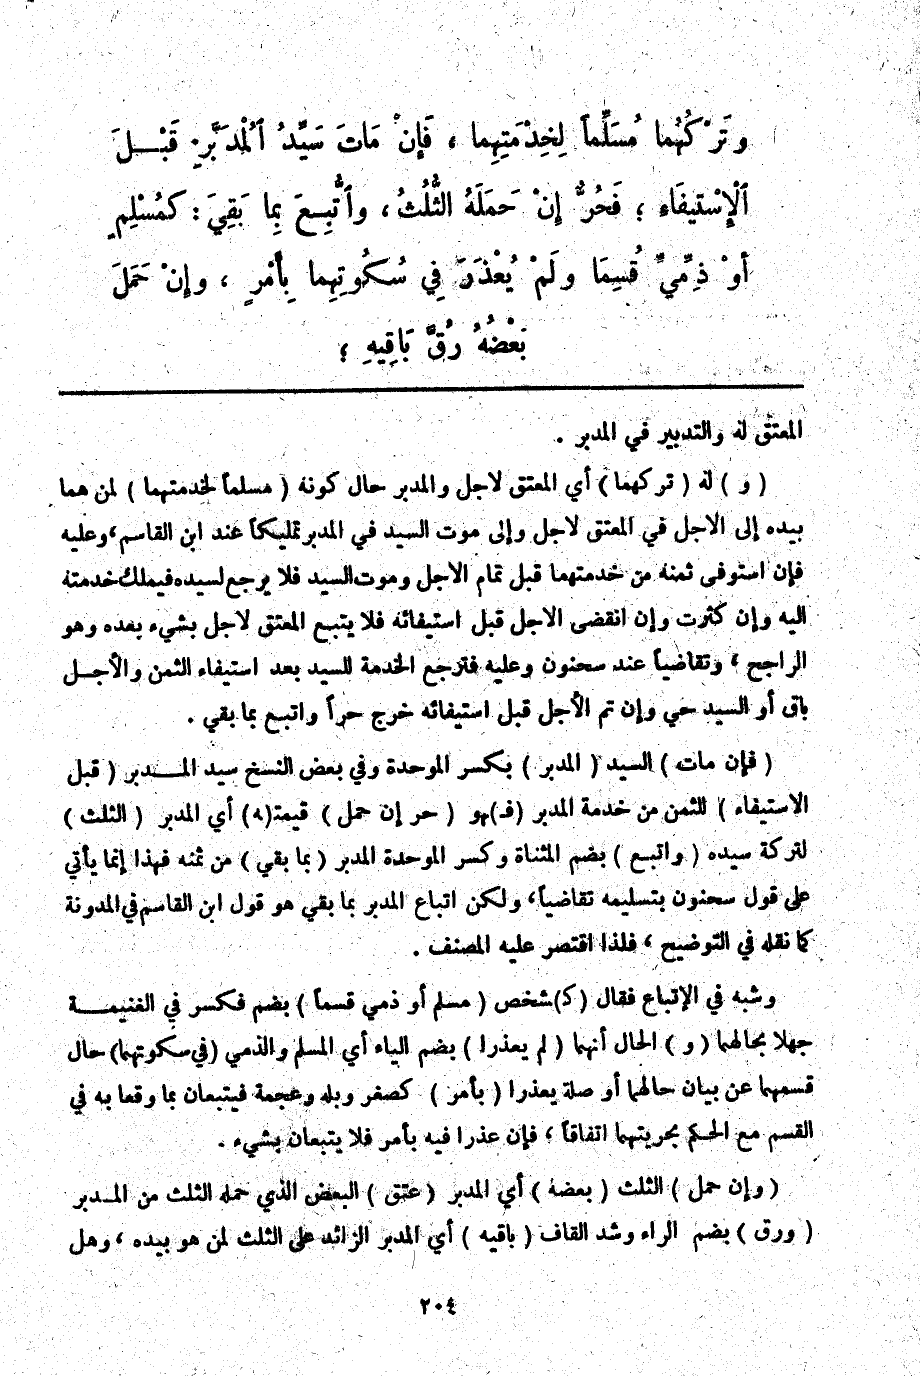 وتَرْكُهُما مُسَلِّماً لِخِدْمَتِهِما ، فَإِن مَاتَ سَيِّدُ ٱلْمُدَبَّرِ قَبْلَ
ٱلْإِسْتِيفَاءِ ؛ فَحُرٌّ إِنْ حَمَلَهُ الثُّلُثُ ، وٱتُّبِعَ بِما بَقِيَ : كَمُسْلِمٍ
أوْ ذِمِّيٍّ قُسِمَا ولَمْ يُعْذَرَا فِي سُكُوتِهِما بِأَمْرٍ ، وإِنْ حَمَلَ
بَعْضَهُ رُقَّ بَاقِيهِ ؛
المعتق له والتدبير في المدبر .
( و ) له ( تركهما ) أي المعتق لاجل والمدبر حال كونه ( مسلماً لخدمتهما ) لمن هما
بيده إلى الاجل في المعتق لاجل وإلى موت السيد في المدبر تمليكاً عند ابن القاسم ، وعليه
فإن استوفى ثمنه من خدمتهما قبل تمام الاجل وموت السيد فلا يرجع لسيده فيملك خدمته
اليه وإن كثرت وإن انقضى الاجل قبل استيفائه فلا يتبع المعتق لاجل بشيء بعده وهو
الراجح ، وتقاضياً عند سحنون وعليه فترجع الخدمة للسيد بعد استيفاء الثمن والأجل
باق أو السيد حي وإن تم الأجل قبل استيفائه خرج حراً واتبع بما بقي .
( فإن مات ) السيد ( المدبر ) بكسر الموحدة وفي بعض النسخ سيد المدبر ( قبل
الاستيفاء ) للثمن من خدمة المدبر (فـ)هو ( حر إن حمل ) قيمتـ(ه) أي المدبر ( الثلث )
لتركة سيده ( واتبع ) بضم المثناة وكسر الموحدة المدبر ( بما بقي ) من ثمنه فهذا إنما يأتي
على قول سحنون بتسليمه تقاضياً ، ولكن اتباع المدبر بما بقي هو قول ابن القاسم في المدونة
كما نقله في التوضيح ، فلذا اقتصر عليه المصنف .
وشبه في الإتباع فقال (كـ)شخص ( مسلم أو ذمي قسماً ) بضم فكسر في الغنيمة
جهلا بحالهما ( و ) الحال أنهما ( لم يعذرا ) بضم الياء أي المسلم والذمي (في سكوتهما) حال
قسمهما عن بيان حالهما أو صلة يعذرا ( بأمر ) كصغر وبله وعجمة فيتبعان بما وقعا به في
القسم مع الحكم بحريتهما اتفاقاً ، فإن عذرا فيه بأمر فلا يتبعان بشيء .
( وإن حمل ) الثلث ( بعضه ) أي المدبر ( عتق ) البعض الذي حمله الثلث من المدبر
( ورق ) بضم الراء وشد القاف ( باقيه ) أي المدبر الزائد على الثلث لمن هو بيده ، وهل
٢٠٤